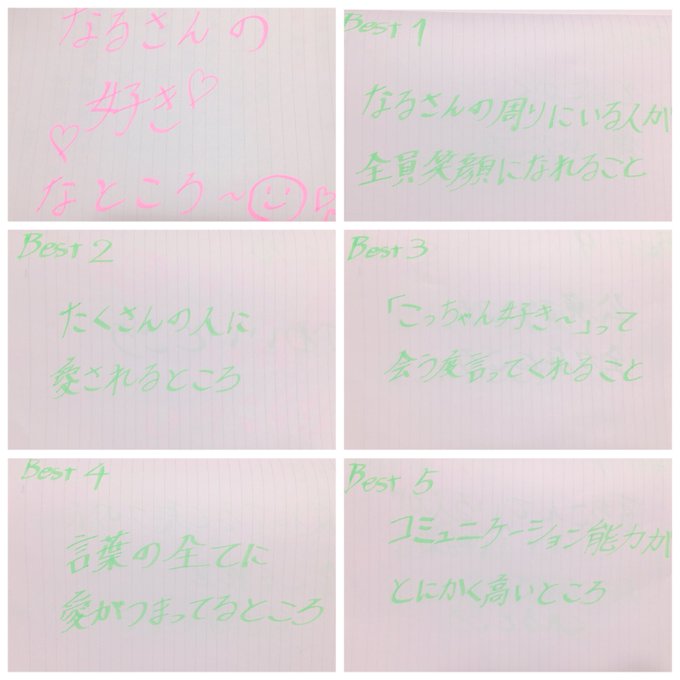 なるさんの
好き♡
♡
なところ〜☺♡
Best 1
なるさんの周りにいる人が
全員笑顔になれること
Best 2
たくさんの人に
愛されるところ
Best 3
「こっちゃん好き〜」って
会う度言ってくれること
Best 4
言葉の全てに
愛がつまってるところ
Best 5
コミュニケーション能力が
とにかく高いところ